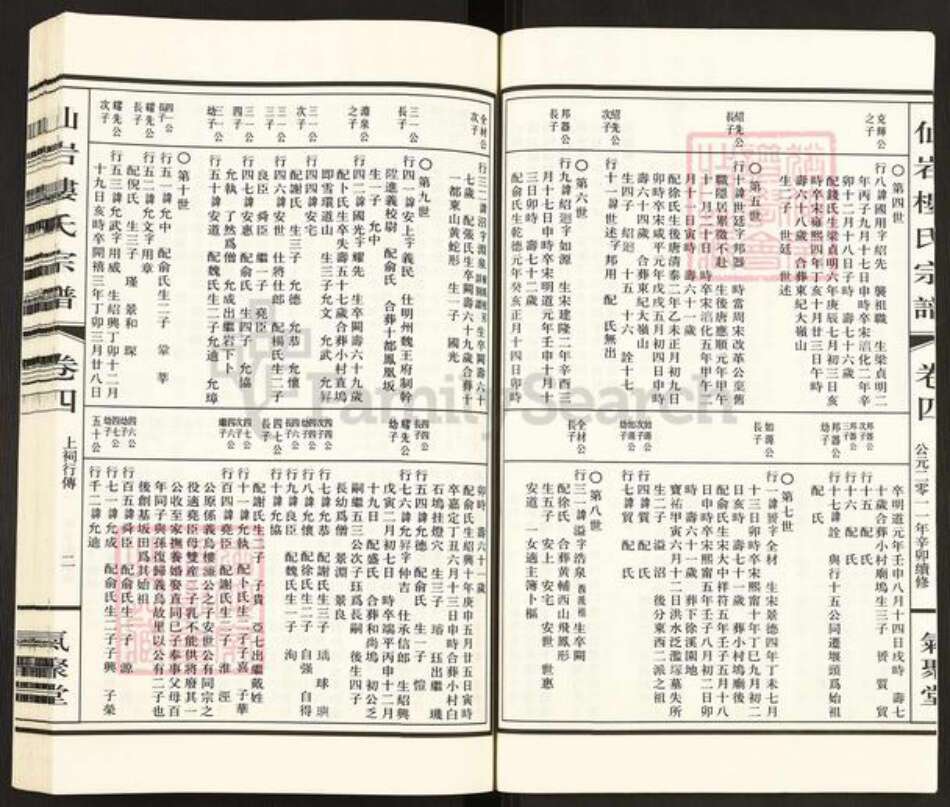 仙岩樓氏宗譜
卷四
公元二零一一年辛卯續修
氣聚堂
克師公之子
○第四世
行八諱國用字紹先　襲祖職　生梁貞明二
年丙子九月十七日申時卒宋淊化二年辛
卯十二月十八日子時　壽七十六歲
配錢氏生梁貞明六年庚辰七月初三日亥
時卒宋雍熙四年丁亥十月廿三日午時
壽六十八歲　合葬東紀大嶺山
生二子　世廷　世述
紹先公長子
○第五世
行十諱世廷字邦器　時當周宋改革公棄舊
職隱居累徵不赴　生後唐應順元年甲午
十一月二十日　時卒宋淊化五年甲午
十一月十日寅時　壽六十一歲
配徐氏生後唐清泰二年乙未正月初九日
卯時卒宋咸平元年戊戌五月初四日申時
壽六十四歲　合葬東紀大嶺山
生四子　紹迴　十五　十六　詮十七
紹先公次子
行十一諱世述字邦用　配　氏無出
邦器公長子
○第六世
行九諱紹迴字如源　生宋建隆二年辛酉三
月十七日申時卒宋明道元年壬申十月十
三日卯時　壽七十二歲
配俞氏生乾德元年癸亥正月十四日卯時
卒明道元年壬申八月十四日戌時　壽七
十歲合葬小村廟塢生三子　贇　質　貿
邦器公次子
行十五　配　氏
邦器公三子
行十六　配　氏
邦器公幼子
行十七諱詮　與行十五公同遷堰頭爲始祖
配　氏
如源公長子
○第七世
行一諱贇字全材　生宋景德四年丁未七月
十三日卯時卒宋熙甯十年丁巳九月初二
日亥時　壽七十一歲　葬小村塢廟後
配俞氏生宋大中祥符五年壬子五月十八
日申時卒宋熙甯五年壬子八月初二日卯
時　壽六十一歲　葬下徐溪園地
寶祐甲寅六月十二日洪水泛濫塚墓失所
生二子　溢　沼　後分東西二派之祖
如源公次子
行公諱質　配　氏
如源公幼子
行七諱貿　配　氏
全材公長子
○第八世
行三一諱溢字浩泉　生卒闕
配徐氏　合葬黃輔西山飛鳳形
生五子　安上　安宅　安世　安惠
安道　一女適主簿卜樞
全材公次子
行三二諱沼字淵泉　生卒闕壽六十
七歲　配張氏生卒闕壽六十九歲合葬十
一都東山黃蛇形　生一子　國光
三一公長子
○第九世
行四一諱安上字義民　仕明州魏王府制幹
陞進義校尉　配俞氏　合葬十都鳳凰坂
生一子　允中
淵泉公之子
行四二諱國光字耀先　生卒闕壽六十九歲
配卜氏生卒失壽五十七歲合葬小村直塢
即雪塚環道山　生三子允文　允武　允昇
三一公次子
行四四諱安宅
配謝氏　生三子　允德　允恭　允懷
三一公三子
行四六諱安世　仕將仕郎　配楊氏生二子
良臣　舜臣　繼一子　堯臣
三一公四子
行四七諱安惠　配俞氏　生四子　允協
允執　了然爲僧　允成出繼岩下卜
三一公幼子
行五十諱安道　配魏氏生二子允適　允璋
四一公長子
○第十世
行五一諱允中　配俞氏生二子　棠　莘
耀先公長子
行五二諱允文字用章
配倪氏　生三子　瑾　景和　琛
耀先公次子
行五三諱允武字用威　生紹興丁卯十二月
十九日亥時卒開禧三年丁卯三月廿八日
卯時　壽六十一歲
配俞氏生紹興十年庚申五月廿五日寅時
卒嘉定丁丑六月十三日申時合葬小村白
石塢挂燈穴　生三子　瑢　珏出繼　璣
四四公長子
行五四諱允德　配俞氏　生一子　愷
耀先公幼子
行七六諱允昇字仲吉　仕承信郎　生紹興
戊寅二月初七日　時卒端平丙申十二月
十九日　配盛氏　合葬和尚塢　初公乏
嗣繼五三公次子珏爲長嗣　後生四子
長幼爲僧　景淵　景良
四四公次子
行七諱允恭　配謝氏生三子　瑀　球　璵
行八諱允懷　配徐氏生二子　自强　自得
行九諱良臣　配魏氏生一子　洵
四七公長子
行十諱允協
配謝氏生二子　子貴　亞七出繼戴姓
行十一諱允執　配卜氏生二子子嘉　子華
四六公繼子
行百四諱堯臣　配謝氏生二子　淮　溼
公原係義烏樓濂公之子安世公有同宗之
役適堯臣母雙產二子乳不能供將廢其一
公收至家撫養婚娶直同已子奉事父母百
年同子與孫復歸義烏故里以公有二子也
後創基坂田爲其始祖
四六公幼子
行百五諱舜臣　配俞氏生一子　源
行七一諱允成　配俞氏生二子子興　子榮
五十公
行千二諱允適
仙岩樓氏宗譜
卷四
上祠行傳
二
氣聚堂
FamilySearch